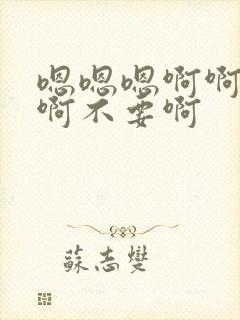 嗯嗯嗯啊啊
啊不要啊
蘇志燮